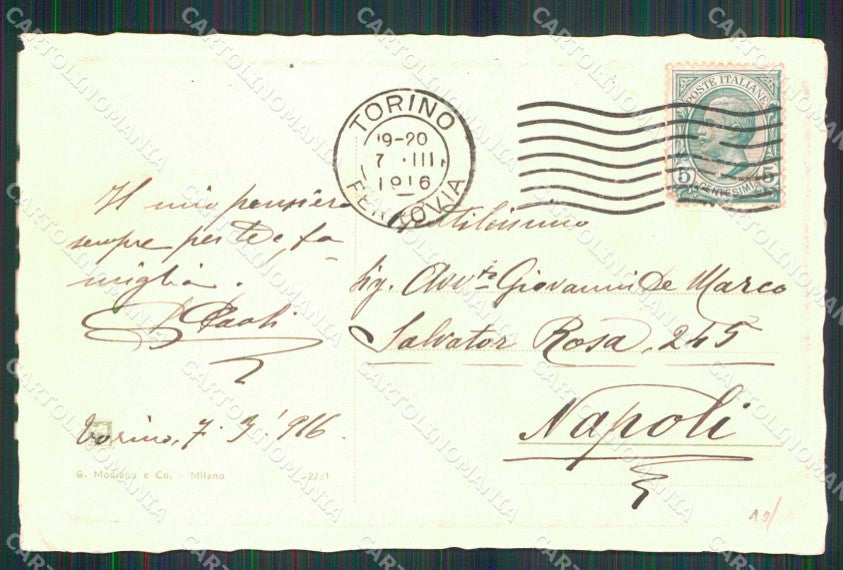 TORINO
19-20
7 III
1916
FERROVIA
POSTE ITALIANE
5 5
CENTESIMI
Il mio pensiero
sempre per te e fa-
miglia.
Paoli
Torino, 7.3.'916.
G. Modiano e Co. - Milano
Gentilissimo
Sig. Avv.to Giovanni De Marco
Salvator Rosa, 245
Napoli
10/
CARTOLINOMANIA